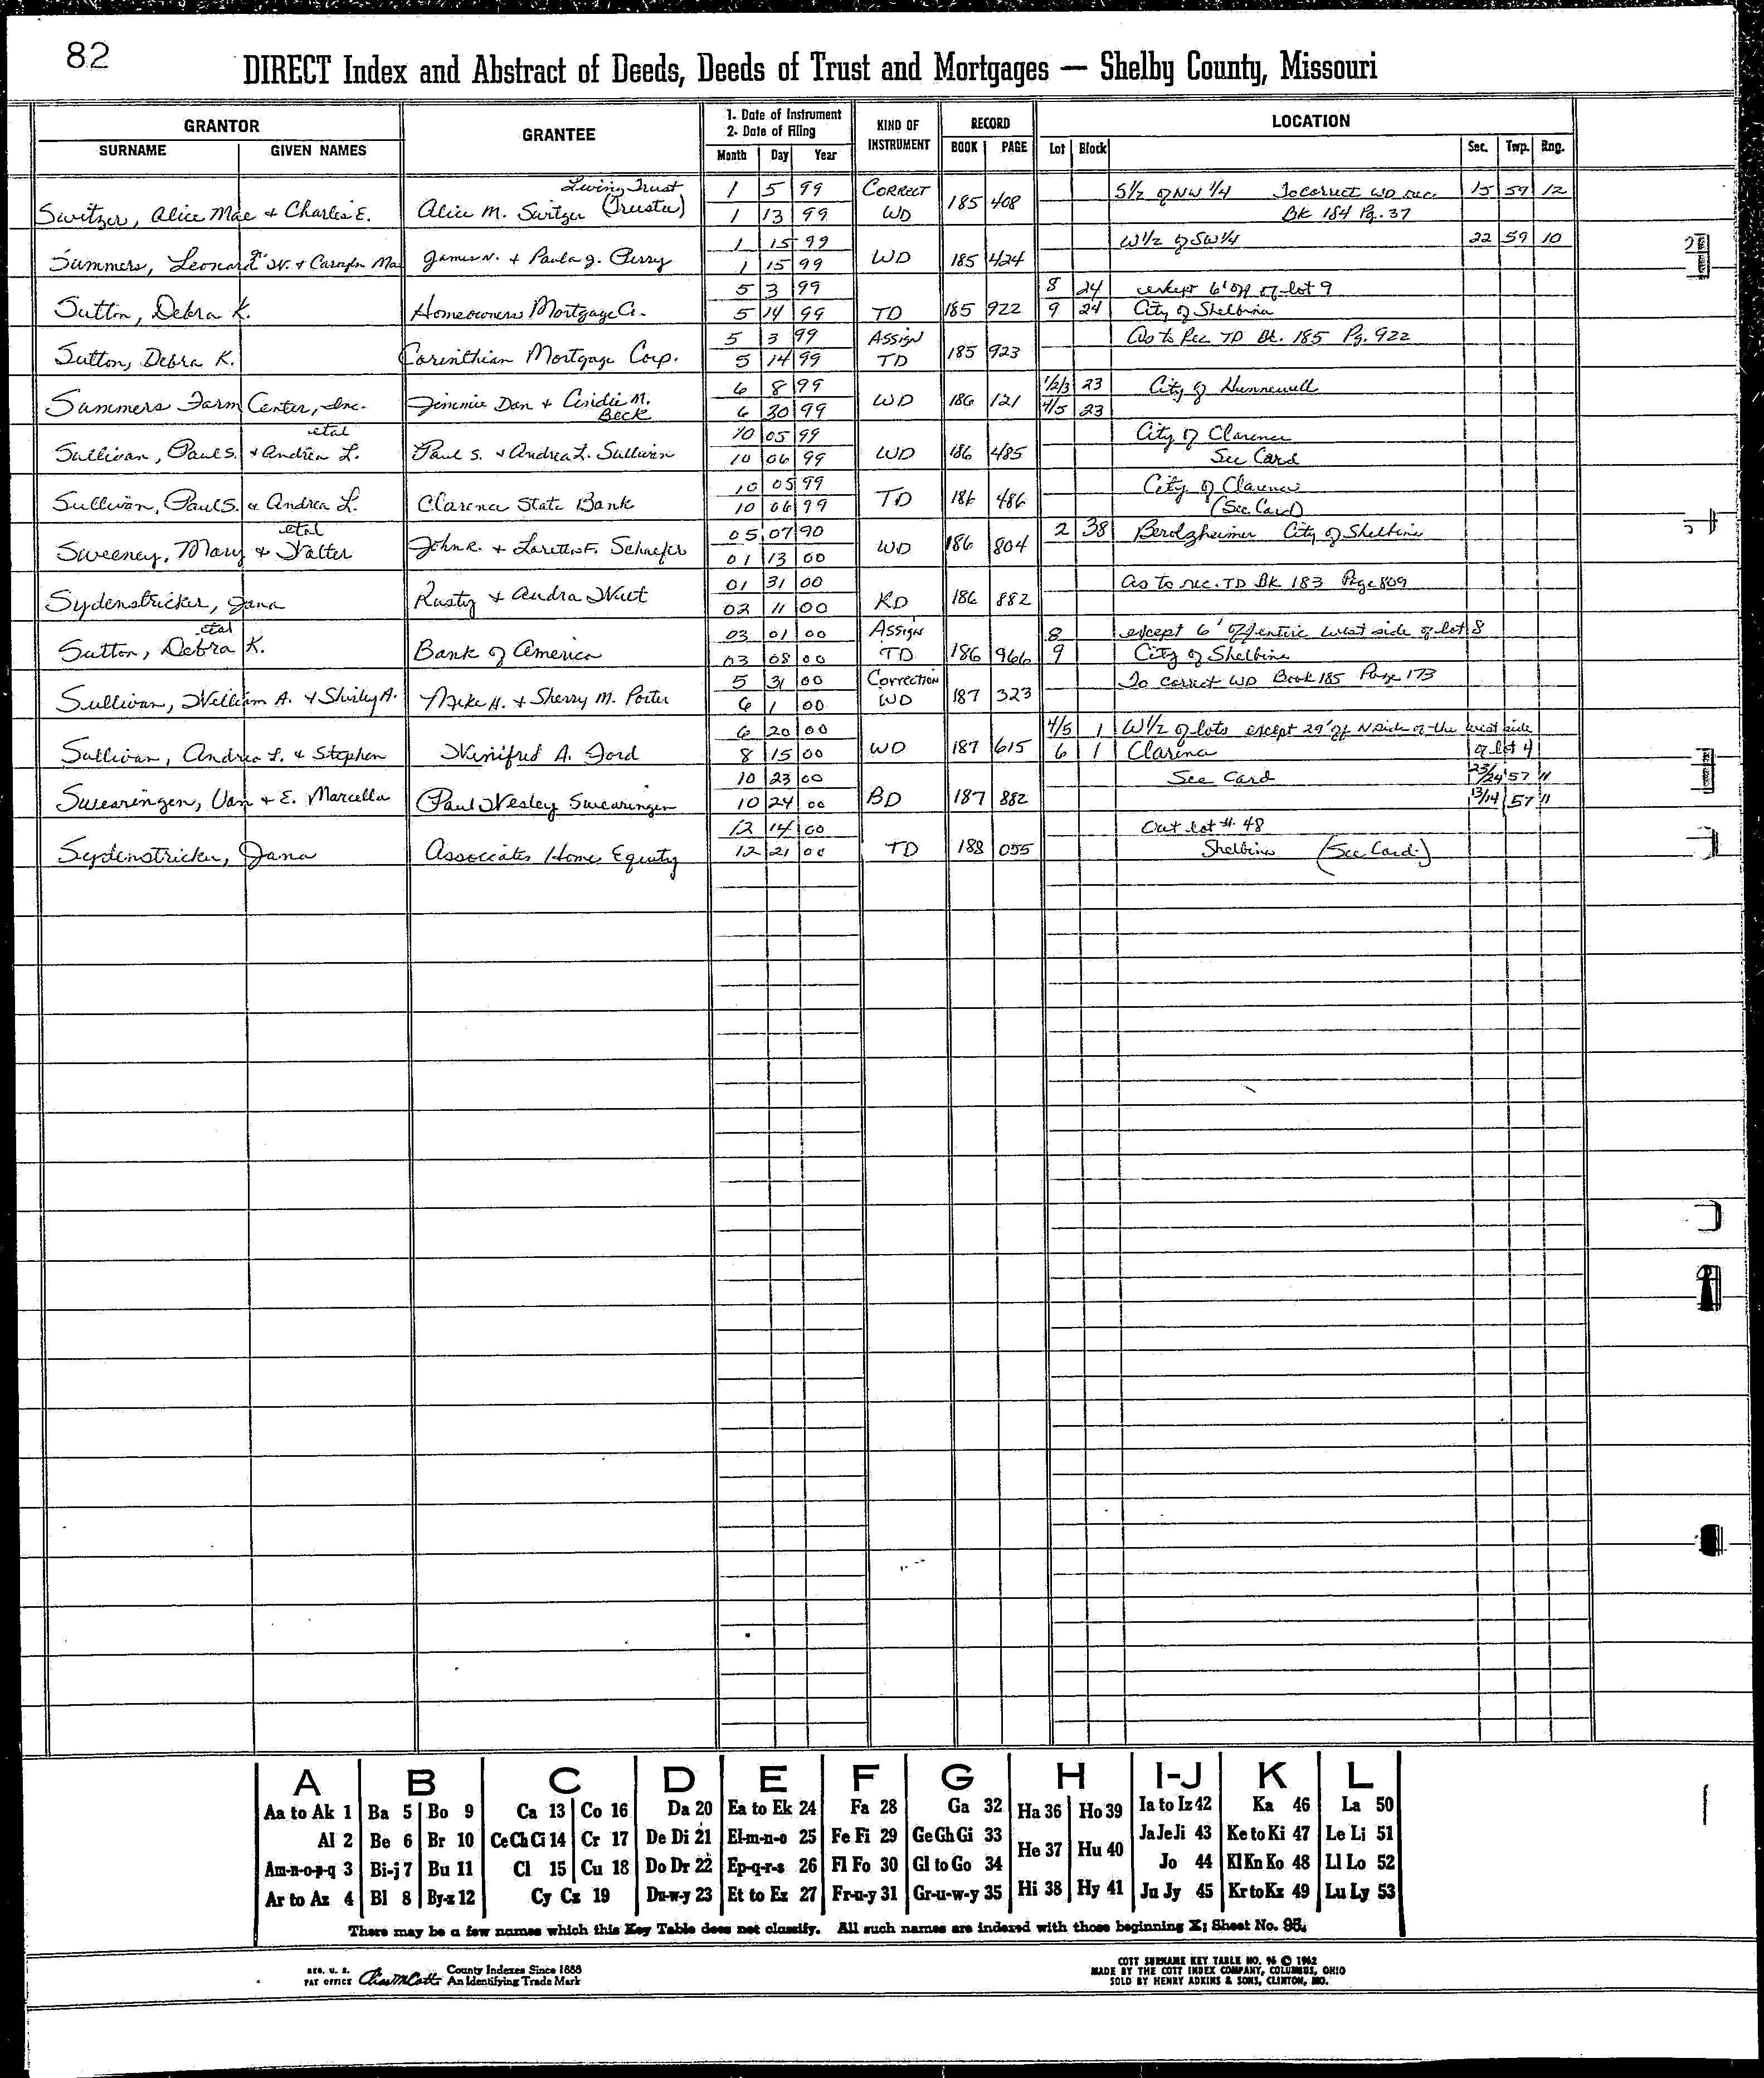 82
DIRECT Index and Abstract of Deeds, Deeds of Trust and Mortgages — Shelby County, Missouri
GRANTOR
SURNAME GIVEN NAMES
GRANTEE
1. Date of Instrument
2. Date of Filing
Month Day Year
KIND OF INSTRUMENT
RECORD
BOOK PAGE
LOCATION
Lot Block Sec. Twp. Rng.
Living Trust 1 5 99 CORRECT S½ of NW ¼ To correct WD rec. 15 59 12
Switzer, Alice Mae & Charles E. Alice M. Switzer (Trustee) 1 13 99 WD 185 408 Bk 184 Pg. 37
1 15 99 W½ of SW¼ 22 59 10
Summers, Leonard W. & Mae James N. & Paula J. Perry 1 15 99 WD 185 424
5 3 99 8 24 except 6' off of lot 9
Sutton, Debra K. Homeowners Mortgage Co. 5 14 99 TD 185 922 9 24 City of Shelbina
5 3 99 ASSIGN As to Rec TD Bk. 185 Pg. 922
Sutton, Debra K. Corinthian Mortgage Corp. 5 14 99 TD 185 923
6 8 99 1/2/3 23 City of Hunnewell
Summers Farm Center, Inc. Jimmie Dan & Cindie M. Beck 6 30 99 WD 186 121 4/5 23
etal 10 05 99 City of Clarence
Sullivan, Paul S. & Andrea L. Paul S. & Andrea L. Sullivan 10 06 99 WD 186 485 See Card
10 05 99 City of Clarence
Sullivan, Paul S. & Andrea L. Clarence State Bank 10 06 99 TD 186 486 (See Card)
etal 05 07 90 2 38 Berolzheimer City of Shelbina
Sweeney, Mary & Walter John R. & Loretta F. Schaefer 01 13 00 WD 186 804
01 31 00 As to rec. TD Bk 183 Page 809
Sydenstricker, Jana Rusty & Audra Wut 02 11 00 RD 186 882
etal 03 01 00 Assign 8 except 6' off entire west side of lot 8
Sutton, Debra K. Bank of America 03 08 00 TD 186 966 9 City of Shelbina
5 31 00 Correction To correct WD Book 185 Page 173
Sullivan, William A. & Shirley A. Mike H. & Sherry M. Porter 6 1 00 WD 187 323
6 20 00 4/5 1 W½ of lots except 29' off N side of the west side
Sullivan, Andrea L. & Stephen Winifred A. Ford 8 15 00 WD 187 615 6 1 Clarence of lot 4
10 23 00 See Card 23/24 57 11
Swearingen, Van & E. Marcella Paul Wesley Swearingen 10 24 00 BD 187 882 13/14 57 11
12 14 00 Out lot # 48
Sydenstricker, Jana Associates Home Equity 12 21 00 TD 188 055 Shelbina (See Card)
A B C D E F G H I-J K L
Aa to Ak 1 Ba 5 Bo 9 Ca 13 Co 16 Da 20 Ea to Ek 24 Fa 28 Ga 32 Ha 36 Ho 39 Ia to Iz 42 Ka 46 La 50
Al 2 Be 6 Br 10 Ce Ch Ci 14 Cr 17 De Di 21 El-m-n-o 25 Fe Fi 29 Ge Gh Gi 33 He 37 Hu 40 Ja Je Ji 43 Ke to Ki 47 Le Li 51
Am-n-o-p-q 3 Bi-j 7 Bu 11 Cl 15 Cu 18 Do Dr 22 Ep-q-r-s 26 Fl Fo 30 Gl to Go 34 Jo 44 Kl Kn Ko 48 Ll Lo 52
Ar to Az 4 Bl 8 By-z 12 Cy Cz 19 Du-w-y 23 Et to Ez 27 Fr-u-y 31 Gr-u-w-y 35 Hi 38 Hy 41 Ju Jy 45 Kr to Kz 49 Lu Ly 53
There may be a few names which this Key Table does not classify. All such names are indexed with those beginning X; Sheet No. 95.
REG. U. S. PAT OFFICE Chas M Cott County Indexes Since 1888
An Identifying Trade Mark
COTT SURNAME KEY TABLE NO. 96 © 1962
MADE BY THE COTT INDEX COMPANY, COLUMBUS, OHIO
SOLD BY HENRY ADKINS & SONS, CLINTON, MO.